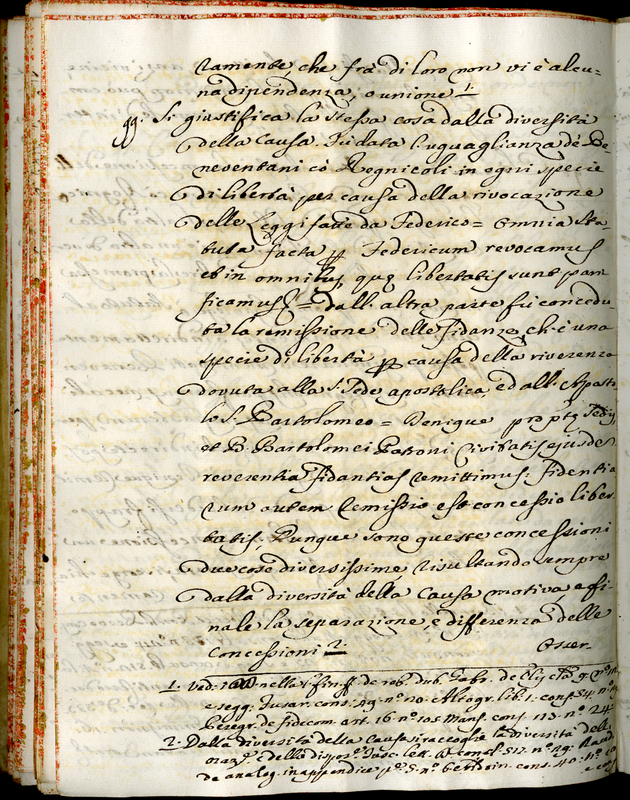 tamente, che frà di loro non vi è alcu-
na dipendenza, o unione 1.
99. Si giustifica la stessa cosa dalla diversità
della Causa. Fù data l'uguaglianza de' Be-
neventani có Regnicoli in ogni specie
di libertà per causa della rivocazione
delle Leggi fatte da Federico = Omnia Sta-
tuta facta per Federicum revocamus
et in omnibus, quę libertatis sunt pari-
ficamus = dall'altra parte fù concedu-
ta la remissione delle Fidanze, ch'è una
specie di libertà per causa della riverenza
dovuta alla S. Sede apostolica, ed all'Aposto-
lo S. Bartolomeo = Denique propter Sedis,
et B. Bartolomei Patroni Civitatis ejusdem
reverentia fidantias remittimus. Fidentia-
rum autem remissio est concessio liber-
tatis. Dunque sono queste concessioni
due cose diversissime, risultando sempre
dalla diversità della Causa motiva, e fi-
nale la separazione, e differenza delle
Concessioni 2.
Osser-
1. Ved. nella l. fin. ff. de reb. dub. Gabr. de
e segg. cons. 49. nº 20. Altogr. lib. 1. cons. 54. nº
Peregr. de fidecom. art. 16. nº 105. Mans. cons. 113. nº 24
2. Dalla diversità della Causa si raccoglie la diversità dell'
oraz. è della dispos. consl. 517. nº 29.
de analog. in appendice pº 5. nº 6. cons. 40. nº
e